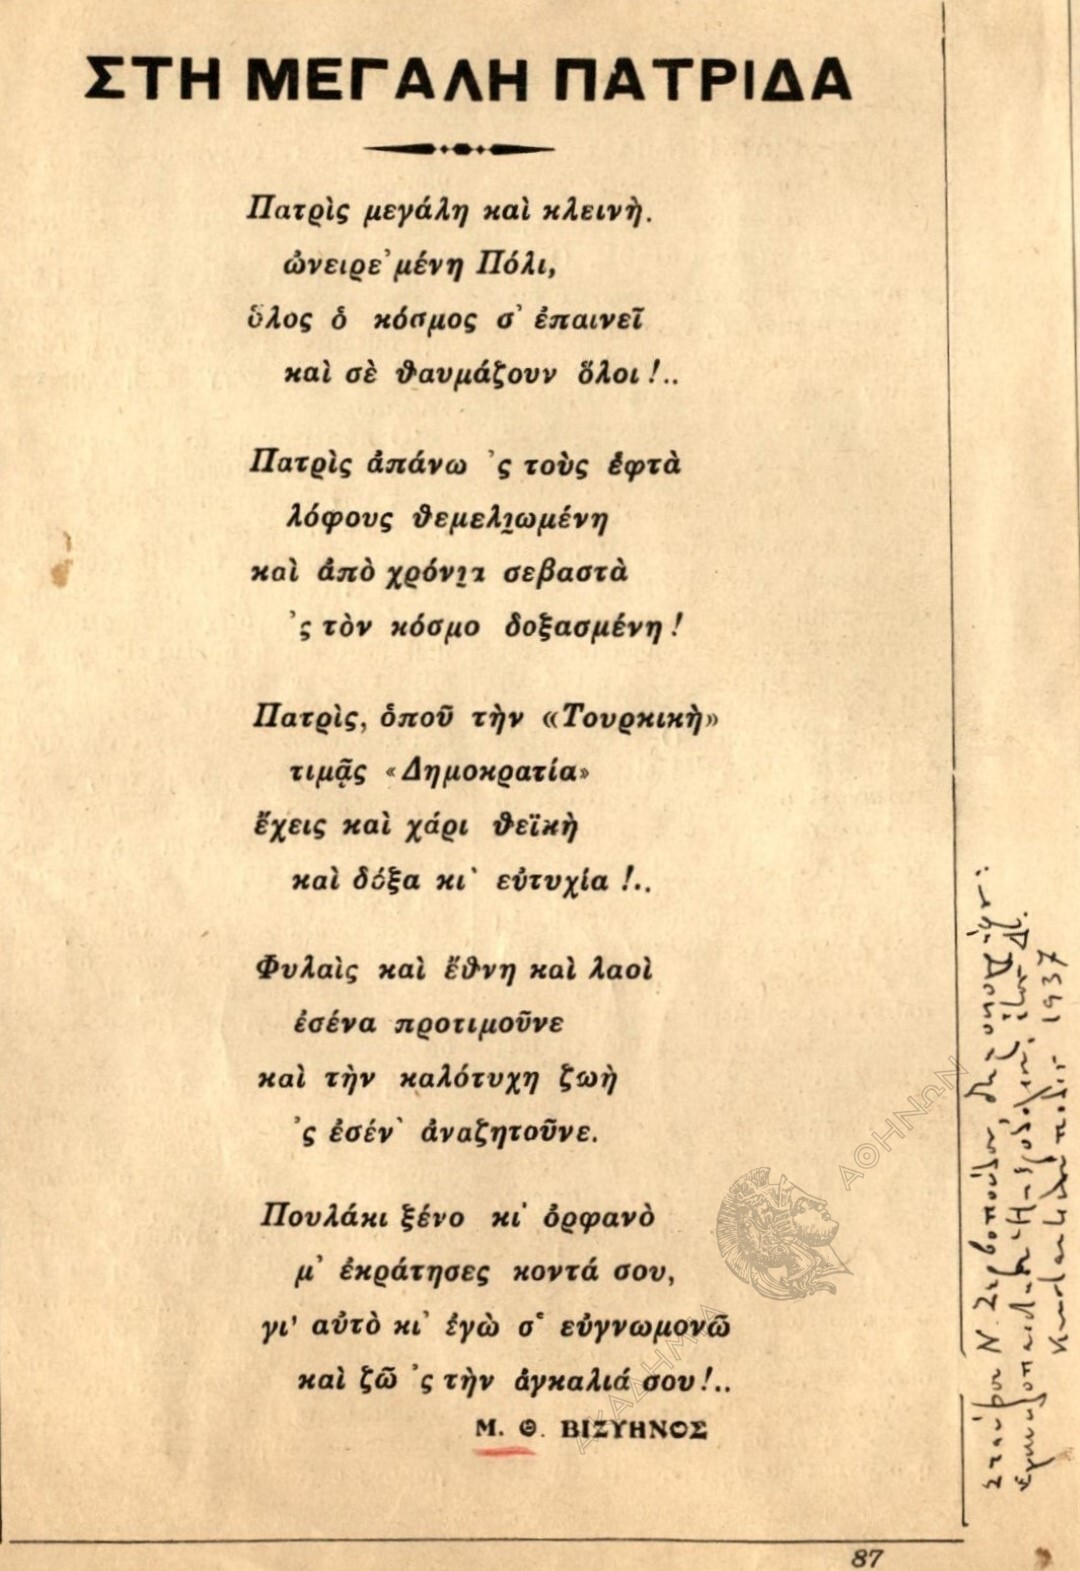 ΣΤΗ ΜΕΓΑΛΗ ΠΑΤΡΙΔΑ
Πατρὶς μεγάλη καὶ κλεινὴ.
ὠνειρε’μένη Πόλι,
ὅλος ὁ κόσμος σ’ ἐπαινεῖ
καὶ σὲ θαυμάζουν ὅλοι!..
Πατρὶς ἀπάνω ’ς τοὺς ἑφτὰ
λόφους θεμελιωμένη
καὶ ἀπὸ χρόνια σεβαστὰ
’ς τὸν κόσμο δοξασμένη!
Πατρὶς, ὁποῦ τὴν «Τουρκικὴ»
τιμᾷς «Δημοκρατία»
ἔχεις καὶ χάρι θεϊκὴ
καὶ δόξα κι’ εὐτυχία!..
Φυλαὶς καὶ ἔθνη καὶ λαοὶ
ἐσένα προτιμοῦνε
καὶ τὴν καλότυχη ζωὴ
’ς ἐσέν’ ἀναζητοῦνε.
Πουλάκι ξένο κι’ ὀρφανὸ
μ’ ἐκράτησες κοντά σου,
γι’ αὐτὸ κι’ ἐγὼ σ’ εὐγνωμονῶ
καὶ ζῶ ’ς τὴν ἀγκαλιά σου!..
Μ. Θ. ΒΙΖΥΗΝΟΣ
87
ΑΚΑΔΗΜΙΑ ΑΘΗΝΩΝ
Σταύρου Ν.
1937